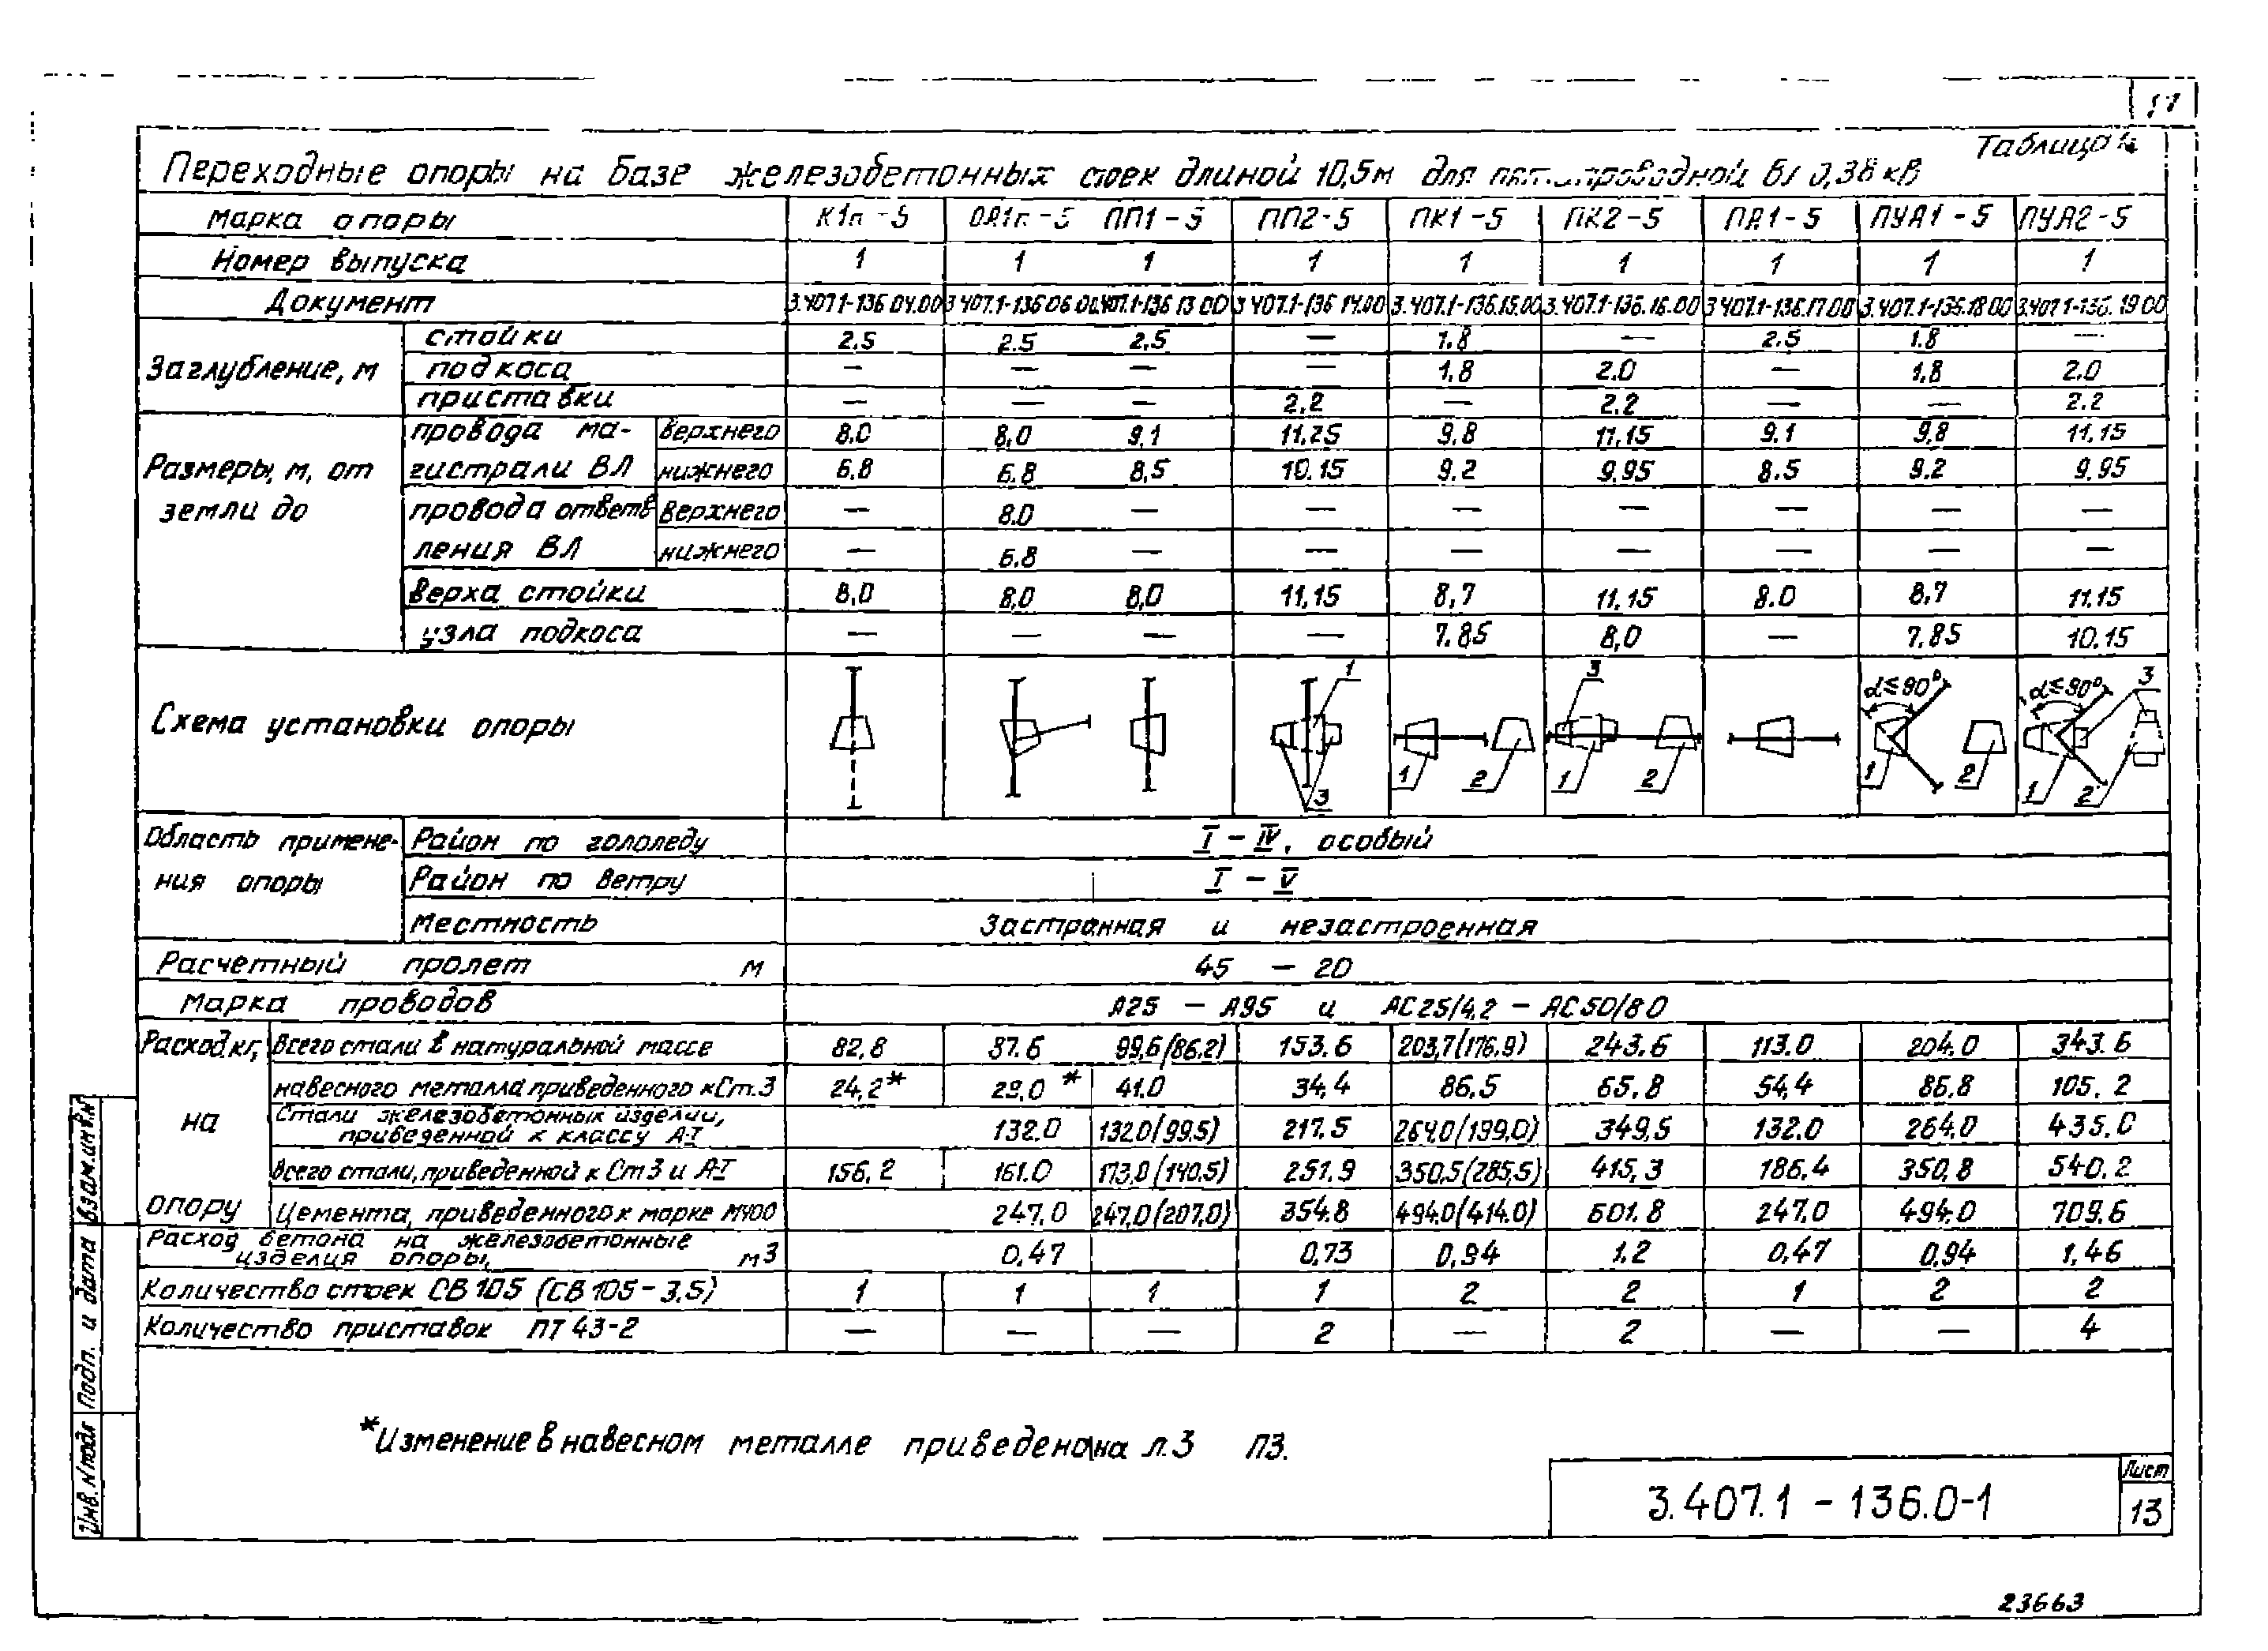 Таблица
Переходные опоры на базе железобетонных стоек длиной 10,5м для пятипроводной ВЛ 0,38 кВ
Марка опоры К1п-5 ОА1п-5 ПП1-5 ПП2-5 ПК1-5 ПК2-5 ПА1-5 ПУА1-5 ПУА2-5
Номер выпуска 1 1 1 1 1 1 1 1 1
Документ 3.407.1-136 04.00 3 407.1-136 06 00 407.1-136 13 00 3 407.1-136 14.00 3.407.1-136.15.00 3.407.1-136.16.00 3 407.1-136.17.00 3.407.1-136.18 00 3.407 1-136. 19 00
Заглубление, м
стойки 2.5 2.5 2,5 — 1.8 — 2.5 1.8 —
подкоса — — — — 1,8 2.0 — 1,8 2.0
приставки — — — 2.2 — 2.2 — — 2.2
Размеры, м, от земли до
провода магистрали ВЛ
верхнего 8.0 8,0 9,1 11,25 9,8 11,15 9,1 9,8 11,15
нижнего 6.8 6.8 8,5 10.15 9.2 9,95 8.5 9.2 9,95
провода ответвления ВЛ
верхнего — 8.0 — — — — — — —
нижнего — 6.8 — — — — — — —
верха стойки 8,0 8,0 8,0 11,15 8,7 11,15 8.0 8,7 11.15
узла подкоса — — — — 7.85 8,0 — 7,85 10.15
Схема установки опоры
1 3
1 2
3 1 2
α≤90° 1 2
α≤90° 3 1 2
Область применения опоры
Район по гололеду I – IV, особый
Район по ветру I – V
Местность Застроенная и незастроенная
Расчетный пролет м 45 – 20
Марка проводов А25 – А95 и АС25/4,2 – АС50/8 0
Расход, кг, на опору
Всего стали в натуральной массе 82,8 87.6 99,6(86.2) 153.6 203,7(176.9) 243.6 113.0 204.0 343.6
навесного металла приведенного к Ст.3 24,2* 29,0* 41.0 34,4 86,5 65,8 54,4 86,8 105,2
Стали железобетонных изделий, приведенной к классу А-I 132.0 132.0(99,5) 217.5 264.0(199,0) 349,5 132.0 264,0 435.0
Всего стали, приведенной к Ст 3 и А-I 156,2 161.0 173,0(140.5) 251.9 350,5(285,5) 415,3 186,4 350,8 540.2
Цемента, приведенного к марке М400 247,0 247,0(207,0) 354.8 494.0(414.0) 601.8 247.0 494.0 709.6
Расход бетона на железобетонные изделия опоры, м3 0,47 0,73 0,94 1.2 0,47 0,94 1,46
Количество стоек СВ 105 (СВ 105-3,5) 1 1 1 1 2 2 1 2 2
Количество приставок ПТ 43-2 — — — 2 — 2 — — 4
*Изменение в навесном металле приведено на л.3 ПЗ.
3.407.1 – 136.0-1
Лист
13
Инв. N подл Подп. и дата Взам.инв.N
23663